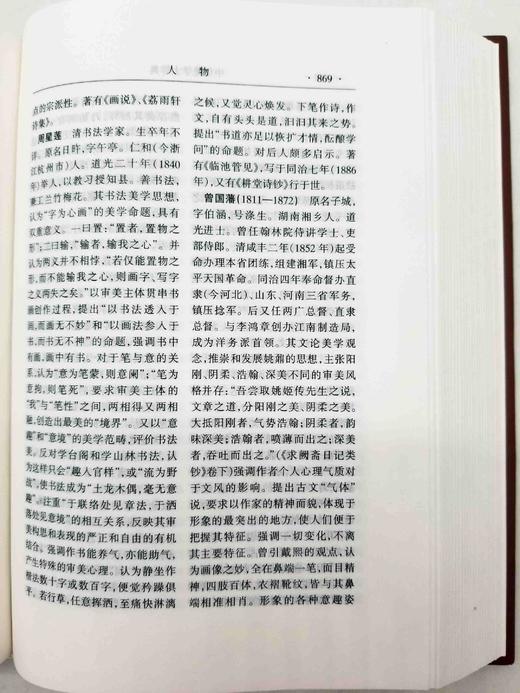 人 物
·869·
点的宗派性。著有《画说》、《荔雨轩
诗集》。
周星莲 清书法学家。生卒年不
详。原名日昨,字午亭。仁和(今浙
江杭州市)人。道光二十年(1840
年)举人,以教习授知县。善书法,
兼工兰竹梅花。其书法美学思想,
认为“字为心画”的美学命题,具有
双重意义。一曰置:“置者,置物之
形”;二曰输,“输者,输我之心”。并
认为两义并不相悖,“若仅能置物之
形,而不能输我之心,则画字、写字
之义两失之矣。”以审美主体贯串书
画创作过程,提出“以书法透入于
画,而画无不妙”和“以画法参入于
书,而书无不神”的命题,强调书中
有画,画中有书。对于笔与意的关
系,认为“意为笔蒙,则意阑”;“笔为
意拘,则笔死”,要求审美主体的
“我”与“笔性”之间,两相得又两相
融,创造出最美的“境界”。又以“意
趣”和“意境”的美学范畴,评价书法
美。反对学台阁和学山林书法,认
为这样只会“趣人官样”,或“流为野
战”,使书法成为“土龙木偶,毫无意
趣”。注重“于联络处见章法,于洒
落处见意境”的相互关系,反映其审
美构思和表现的严正和自由的有机
结合。强调作书能养气,亦能助气,
产生特殊的审美心理。认为静坐作
楷法数十字或数百字,便觉矜躁俱
平。若行草,任意挥洒,至痛快淋漓
之候,又觉灵心焕发。下笔作诗,作
文,自有头头是道,汩汩其来之势。
提出“书道亦足以恢扩才情,酝酿学
问”的命题。对后人颇多启示。著
有《临池管见》,写于同治七年(1886
年),又有《耕堂诗钞》行于世。
曾国藩(1811—1872) 原名子城,
字伯涵,号涤生。湖南湘乡人。道
光进士。曾任翰林院侍讲学士、吏
部侍郎。清咸丰二年(1852 年)起受
命办理本省团练,组建湘军,镇压太
平天国革命。同治四年奉命督办直
隶(今河北)、山东、河南三省军务,
镇压捻军。后又任两广总督、直隶
总督。与李鸿章创办江南制造局,
成为洋务派首领。其文论美学观
念,推崇和发展姚鼐的思想,主张阳
刚、阴柔、浩瀚、深美不同的审美风
格并存:“吾尝取姚姬传先生之说,
文章之道,分阳刚之美、阴柔之美。
大抵阳刚者,气势浩瀚;阴柔者,韵
味深美;浩瀚者,喷薄而出之;深美
者,吞吐而出之。”(《求阙斋日记类
钞》卷下)强调作者个人心理气质对
于文风的影响。提出古文“气体”
说,要求以作家的精神面貌,体现于
形象的最突出的地方,使人们便于
把握其特征。强调一切变化,不离
其主要特征。曾引戴熙的观点,认
为画像之妙,全在鼻端一笔,而目精
神,四肢百体,衣褶靴纹,皆与其鼻
端相准相肖。形象的各种意趣姿